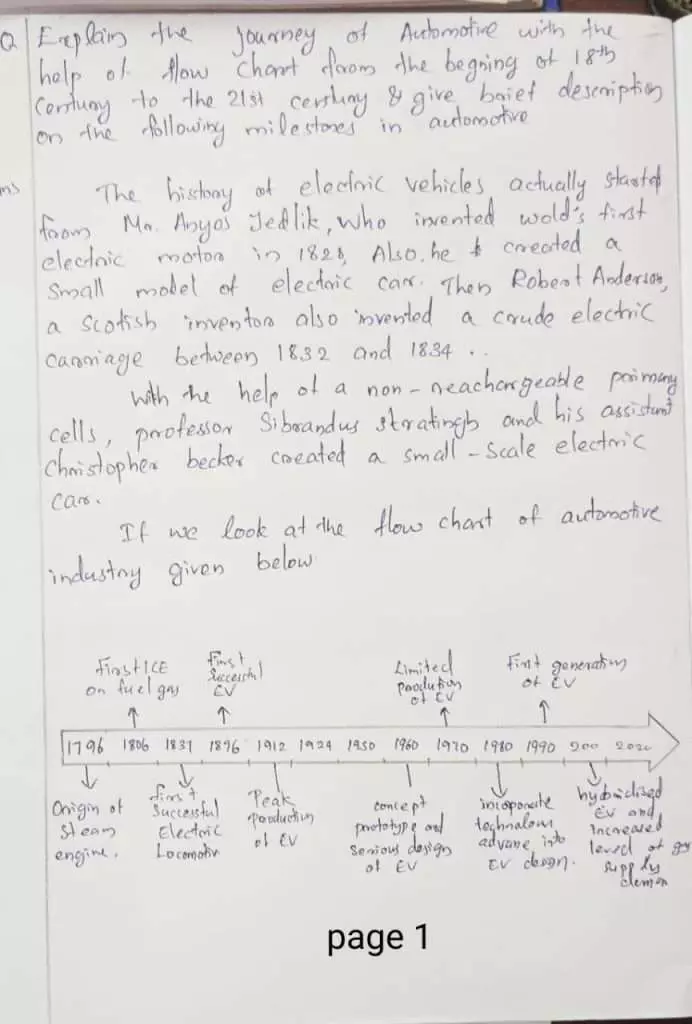 Q Explain the journey of Automotive with the
help of flow chart from the begning of 18th
Century to the 21st century & give brief description
on the following milestones in automotive
ns The history of electric vehicles actually started
from Mr. Anyos Jedlik, who invented wold's first
electric motor in 1828, Also, he created a
small model of electric car. Then Robert Anderson,
a Scotish inventor also invented a crude electric
carriage between 1832 and 1834 . .
With the help of a non-reachargeable primary
cells, professor Sibrandus stratingh and his assistant
Christopher becker created a small-scale electric
car.
If we look at the flow chart of automotive
industry given below
First ICE
on fuel gas
First
Successful
EV
Limited
production
of EV
First generation
of EV
1796 1806 1837 1896 1912 1924 1950 1960 1970 1980 1990 200 2020
Origin of
steam
engine.
first
Successful
Electric
Locomotiv
Peak
production
of EV
concept
prototype and
Serious design
of EV
incoporate
technalou
advane into
EV design.
hybridised
EV and
increased
level of
supply
page 1